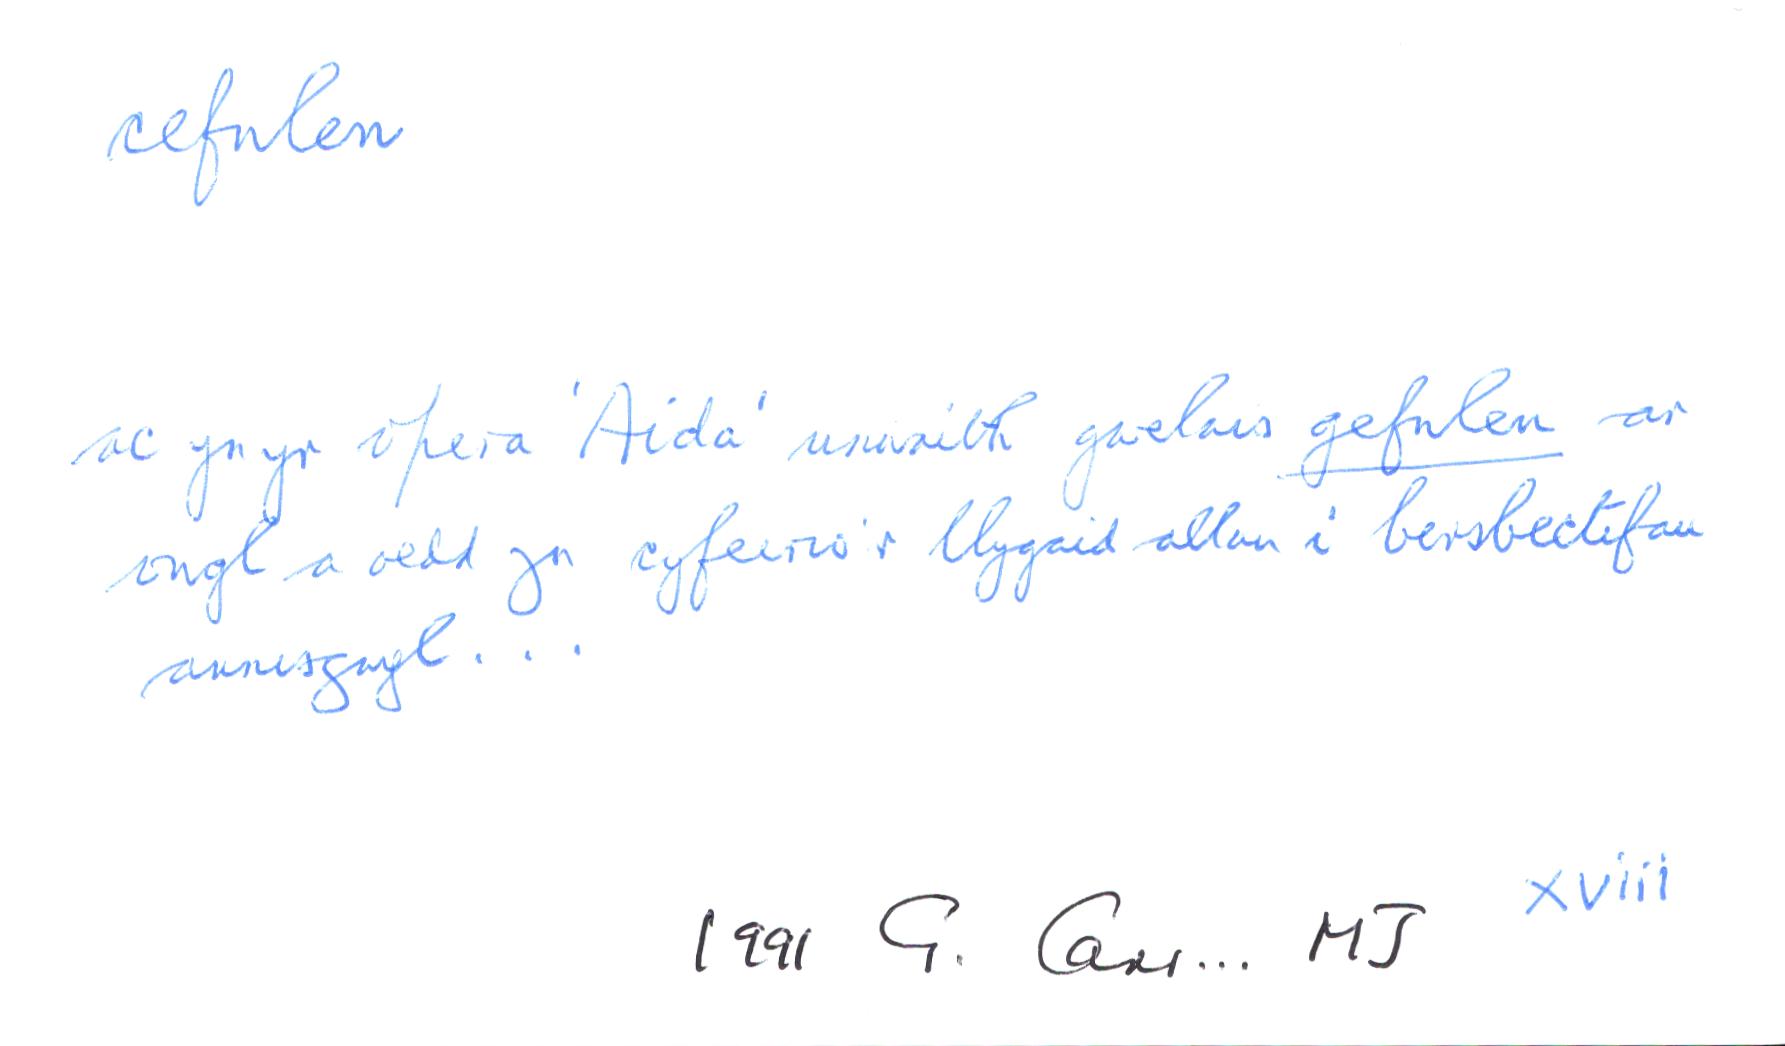 cefnlen
ac yn yr opera 'Aida' unwaith gwelais gefnlen ar
ongl a oedd yn cyfeirio'r llygaid allan i bersbectifau
annisgwyl...
1991 G. Carr... MJ xviii